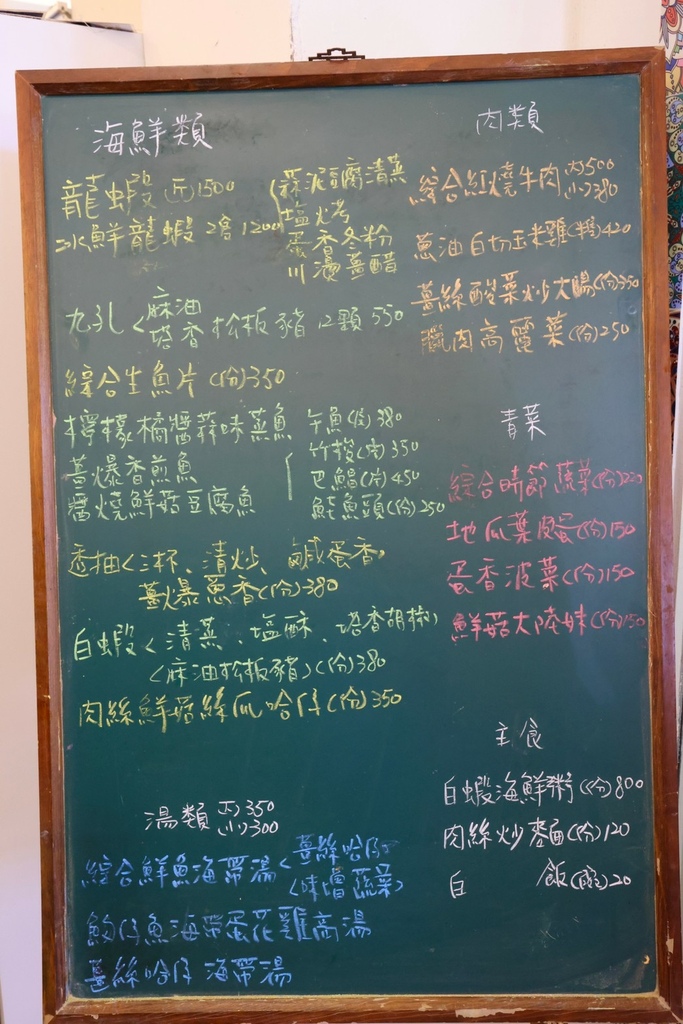 海鮮類
龍蝦(斤)1500
冰鮮龍蝦2隻1200
蒜泥豆腐清蒸
塩烤
蛋香冬粉
川燙薑醋
九孔<麻油
塔香松板豬12顆550
綜合生魚片(份)350
檸檬橘醬蒜味蒸魚
薑爆香煎魚
醬燒鮮菇豆腐魚
午魚(隻)380
竹梭(片)350
巴鰡(片)450
鮭魚頭(份)250
透抽<三杯、清炒、鹹蛋香,
薑爆蔥香(份)380
白蝦<清蒸、塩酥、塔香胡椒)
(麻油松板豬)(份)380
肉絲鮮菇絲瓜哈仔(份)350
湯類 大)350
小)300
綜合鮮魚海帶湯<薑絲哈仔)
(味噌蔬菜)
魩仔魚海帶蛋花雞高湯
薑絲哈仔海帶湯
肉類
綜合紅燒牛肉 大)500
小)380
蔥油白切玉米雞(半隻)420
薑絲酸菜炒大腸(份)350
臘肉高麗菜(份)250
青菜
綜合時節蔬菜(份)220
地瓜葉皮蛋(份)150
蛋香波菜(份)150
鮮菇大陸妹(份)150
主食
白蝦海鮮粥(份)800
肉絲炒麵(份)120
白 飯(碗)20